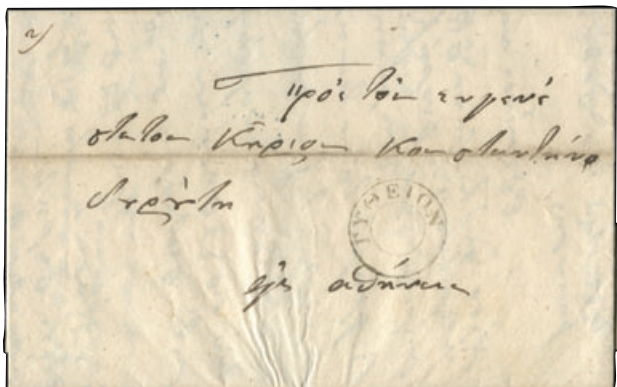 Πρὸς τὸν ευγενέ
στατον Κύριον Κονσταντίνο
ΓΥΘΕΙΟΝ
εἰς αθήνας